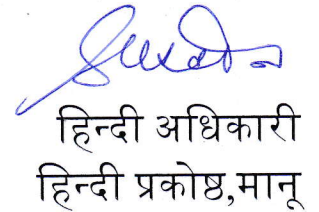 हिन्दी अधिकारी
हिन्दी प्रकोष्ठ,मानू